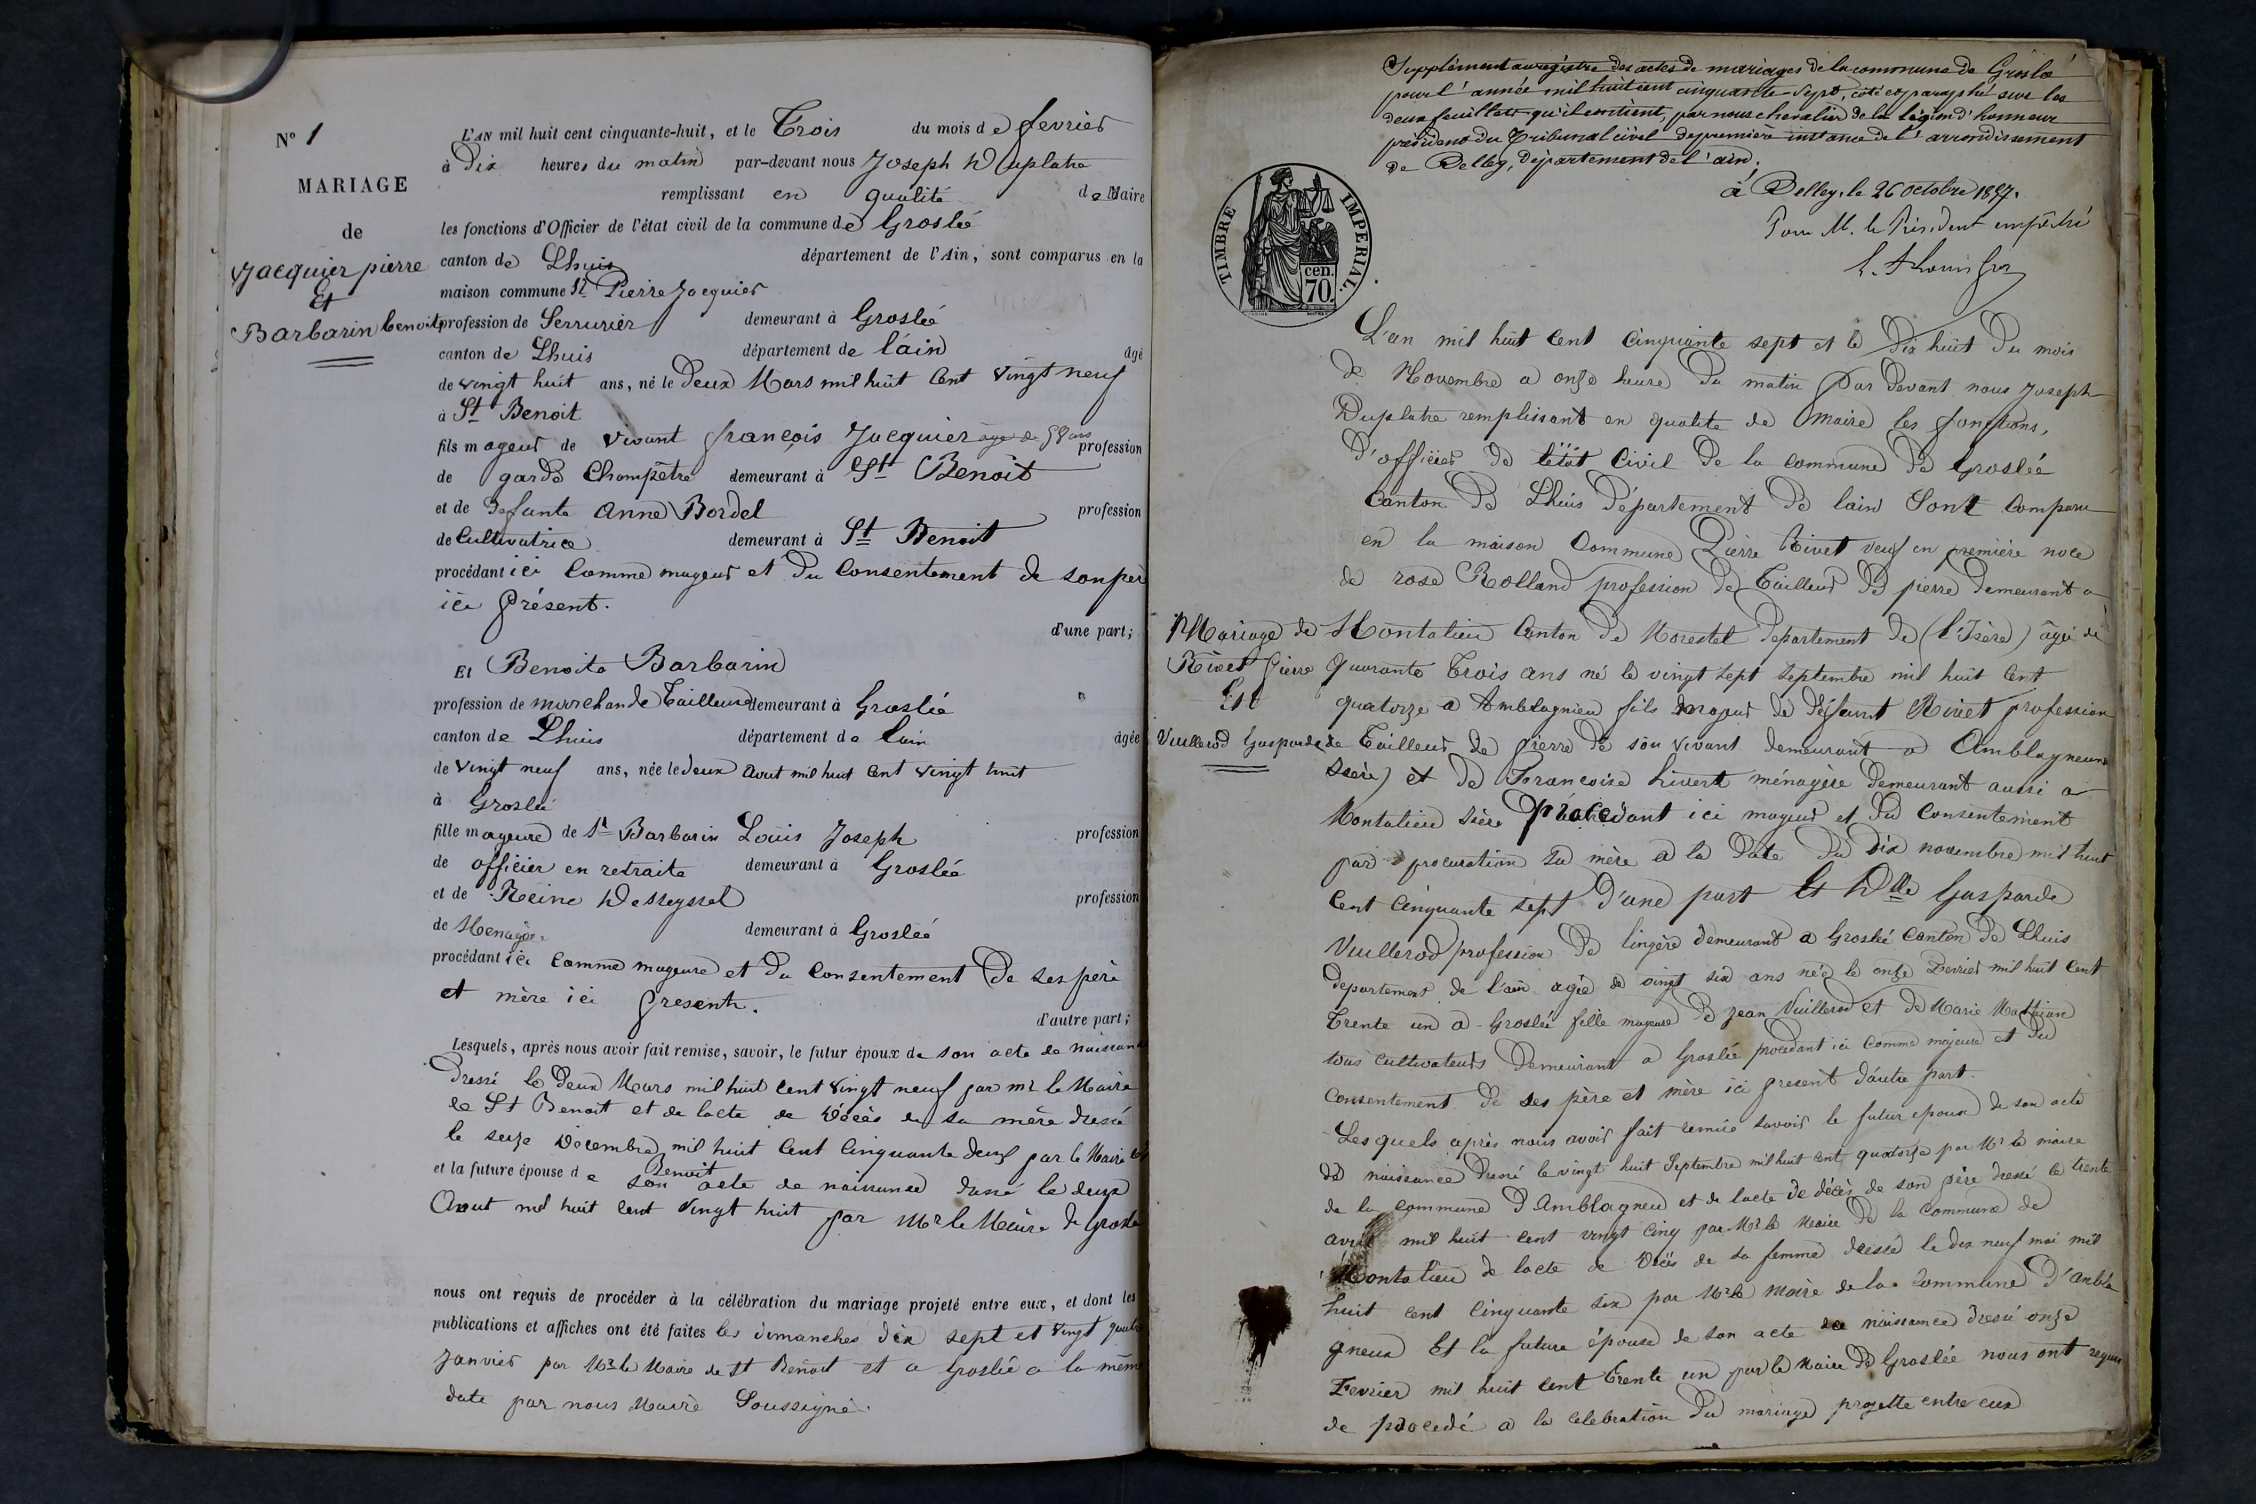 N° 1
MARIAGE
de
Jacquier pierre
Et
Barbarin benoite
L'AN mil huit cent cinquante-huit, et le Trois du mois de fevrier
à Dix heures du matin par-devant nous Joseph Duplatre
remplissant en qualité de Maire
les fonctions d'Officier de l'état civil de la commune de Groslée
canton de Lhuis département de l'Ain, sont comparus en la
maison commune Sr Pierre Jacquier
profession de Serrurier demeurant à Groslée
canton de Lhuis département de l'ain âgé
de vingt huit ans, né le Deux Mars mil huit Cent Vingt neuf
à St Benoit
fils mageur de vivant françois Jacquier age de 58 ans profession
de garde Champêtre demeurant à St Benoit
et de defunte Anne Bordel profession
de Cultivatrice demeurant à St Benoit
procédant ici Comme mageur et Du Consentement de son père
ici Présent.
d'une part;
Et Benoite Barbarin
profession de marchande Tailleuse demeurant à Groslée
canton de Lhuis département de Lain âgée
de Vingt neuf ans, née le deux Aout mil huit Cent vingt huit
à Groslée
fille mageure de Sr Barbarin Louis Joseph profession
de officier en retraite demeurant à Groslée
et de Reine Desseyssel profession
de Menagère demeurant à Groslée
procédant ici Comme mageure et Du Consentement De ses père
et mère ici Present.
d'autre part;
Lesquels, après nous avoir fait remise, savoir, le futur époux de son acte de naissance
Dressé le Deux Mars mil huit Cent Vingt neuf par mr le Maire
de St Benoit et de lacte de Décès de sa mère dressé
le seize Décembre mil huit Cent Cinquante deux par le Maire de St
Benoit
et la future épouse de son acte de naissance dressé le deux
Aout mil huit Cent Vingt huit par Mr le Maire de Groslée
nous ont requis de procéder à la célébration du mariage projeté entre eux, et dont les
publications et affiches ont été faites les dimanches Dix sept et Vingt quatre
Janvier par Mr le Maire de St Benoit et a Groslée a la même
date par nous Maire Soussigné.
Supplément au registre des actes de mariages de la commune de Groslée
pour l'année mil huit cent cinquante-sept, coté et paraphé sur les
deux feuillets qu'il contient, par nous chevalier de la Légion d'honneur
président du Tribunal civil de première instance de l'arrondissement
de Belley, département de l'ain.
à Belley, le 26 octobre 1857.
Pour M. le Président empêché
TIMBRE IMPERIAL.
cen.
70.
L'an mil huit Cent Cinquante sept et le Dix huit Du mois
de Novembre a onze heure Du matin Par Devant nous Joseph
Duplatre remplissant en qualite de Maire les fonctions,
D'officier De létat Civil De la Commune De Groslée
Canton De Lhuis Département De lain Sont Comparu
en la maison Commune Pierre Rivet veuf en première noce
de rose Rolland profession De Tailleur De pierre Demeurant a
Mariage de
Rivet Pierre
Et
Vuillerod Gasparde
Montalieu Canton De Morestel Departement De (L'Isère) âgé de
Quarante Trois ans né le vingt sept Septembre mil huit Cent
quatorze a Amblagnieu fils mageur de defunt Rivet profession
de Tailleur De Pierre De son vivant demeurant a Amblagneux
Isère) et De Francoise hivert ménagère Demeurant aussi a
Montalieu Isère Procedant ici mageur et Du Consentement
par procuration Sa mère a la Date Du Dix novembre mil huit
Cent Cinquante sept D'une part Et Dlle Gasparde
Vuillerod profession De lingère demeurant a Groslée Canton De Lhuis
Departement de l'ain agée de vingt six ans née le onze Fevrier mil huit Cent
Trente un a Groslée fille mageure De Jean Vuillerod et de Marie Mathian
tous cultivateurs Demeurant a Groslée procedant ici Comme majeure et Du
Consentement De ses père et mère ici present d'autre part.
Lesquels après nous avoir fait remise savoir le futur epoux de son acte
de naissance Dressé le vingt huit Septembre mil huit Cent quatorze par Mr le maire
de la commune D'Amblagneu et de lacte De décès de son père dressé le trente
avril mil huit cent vingt cinq par Mr le Maire De la Commune de
Montalieu de lacte de Décès de sa femme dressé le dix neuf mai mil
huit Cent Cinquante six par Mr le Maire de la Commune D'Ambla
gneux Et la future épouse de son acte de naissance dressé onze
Fevrier mil huit Cent Trente un par le Maire De Groslée nous ont requis
de procedé a la celebration Du mariage projetté entre eux